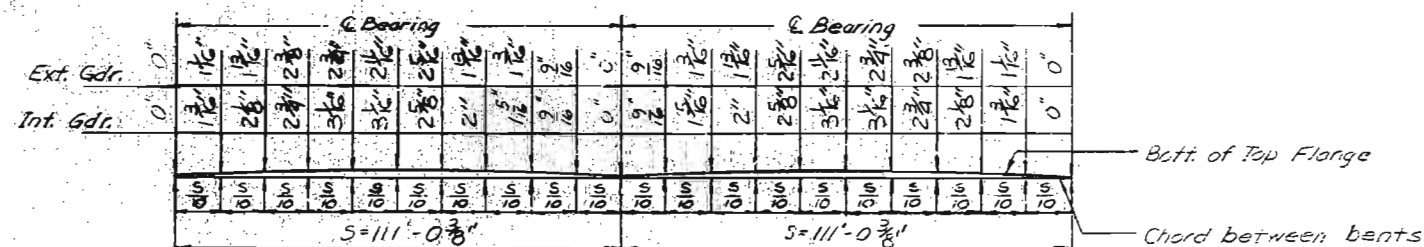 ℄ Bearing ℄ Bearing
Ext. Gdr. 0" 1 1/16" 1 13/16" 2 3/8" 2 3/4" 2 5/16" 1 13/16" 1 3/16" 9/16" 0" 9/16" 1 3/16" 1 13/16" 2 5/16" 2 3/4" 2 3/8" 1 13/16" 1 1/16" 0"
Int. Gdr. 0" 1 3/16" 2 1/8" 2 3/4" 3 1/16" 3 1/16" 2 5/8" 2" 1 5/16" 9/16" 0" 9/16" 1 5/16" 2" 2 5/8" 3 1/16" 3 1/16" 2 3/4" 2 1/8" 1 3/16" 0"
Bott. of Top Flange
S/10 S/10 S/10 S/10 S/10 S/10 S/10 S/10 S/10 S/10 S/10 S/10 S/10 S/10 S/10 S/10 S/10 S/10 S/10 S/10
S=111'-0 3/8" S=111'-0 3/8"
Chord between bents